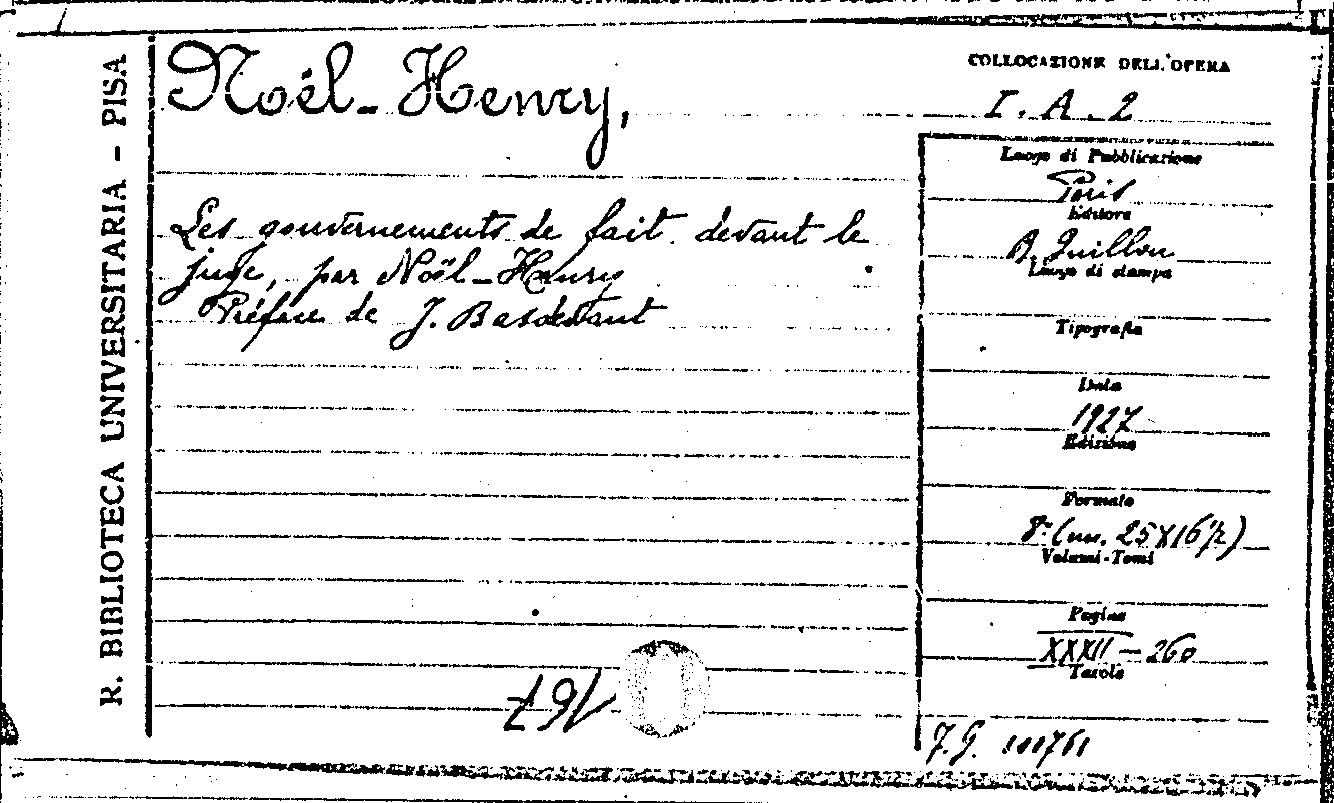 R. BIBLIOTECA UNIVERSITARIA - PISA
Noël-Henry,
Les gouvernements de fait devant le
juge, par Noël-Henry
Préface de J. Basdevant
167
COLLOCAZIONE DELL'OPERA
I. A. 2
Luogo di Pubblicazione
Paris
Editore
Guillon
Luogo di stampa
Tipografia
Data
1927
Edizione
Formato
8° (cm. 25 X 16 1/2)
Volumi-Tomi
Pagine
XXXII - 260
Tavole